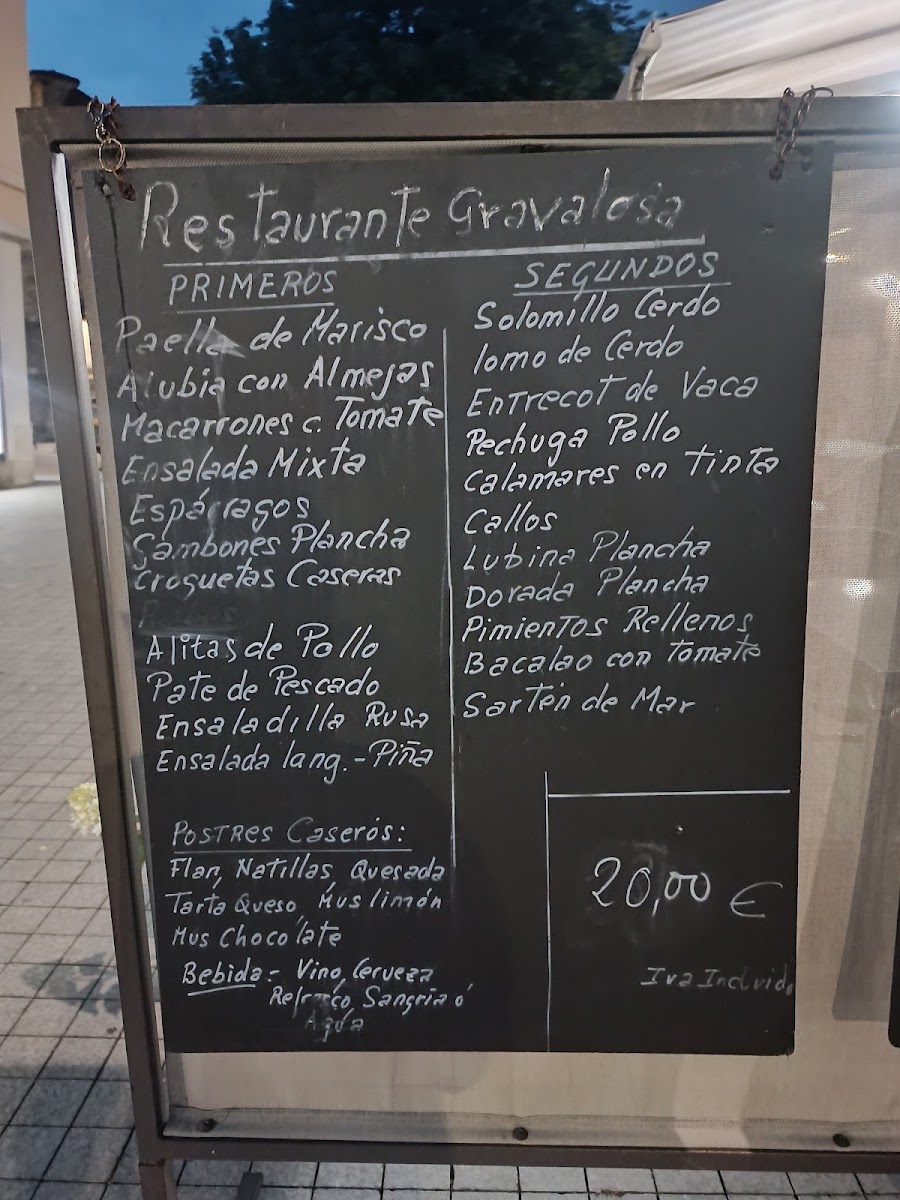 Restaurante Gravalosa
PRIMEROS
Paella de Marisco
Alubia con Almejas
Macarrones c. Tomate
Ensalada Mixta
Espárragos
Gambones Plancha
Croquetas Caseras
Alitas de Pollo
Pate de Pescado
Ensaladilla Rusa
Ensalada lang.-Piña
SEGUNDOS
Solomillo Cerdo
lomo de Cerdo
Entrecot de Vaca
Pechuga Pollo
Calamares en tinta
Callos
Lubina Plancha
Dorada Plancha
Pimientos Rellenos
Bacalao con tomate
Sartén de Mar
Postres Caserós:
Flan, Natillas, Quesada
Tarta Queso, Mus limón
Mus Chocolate
Bebida:- Vino, Cerveza
Refresco, Sangria ó
Agua
20,00 €
Iva Incluido